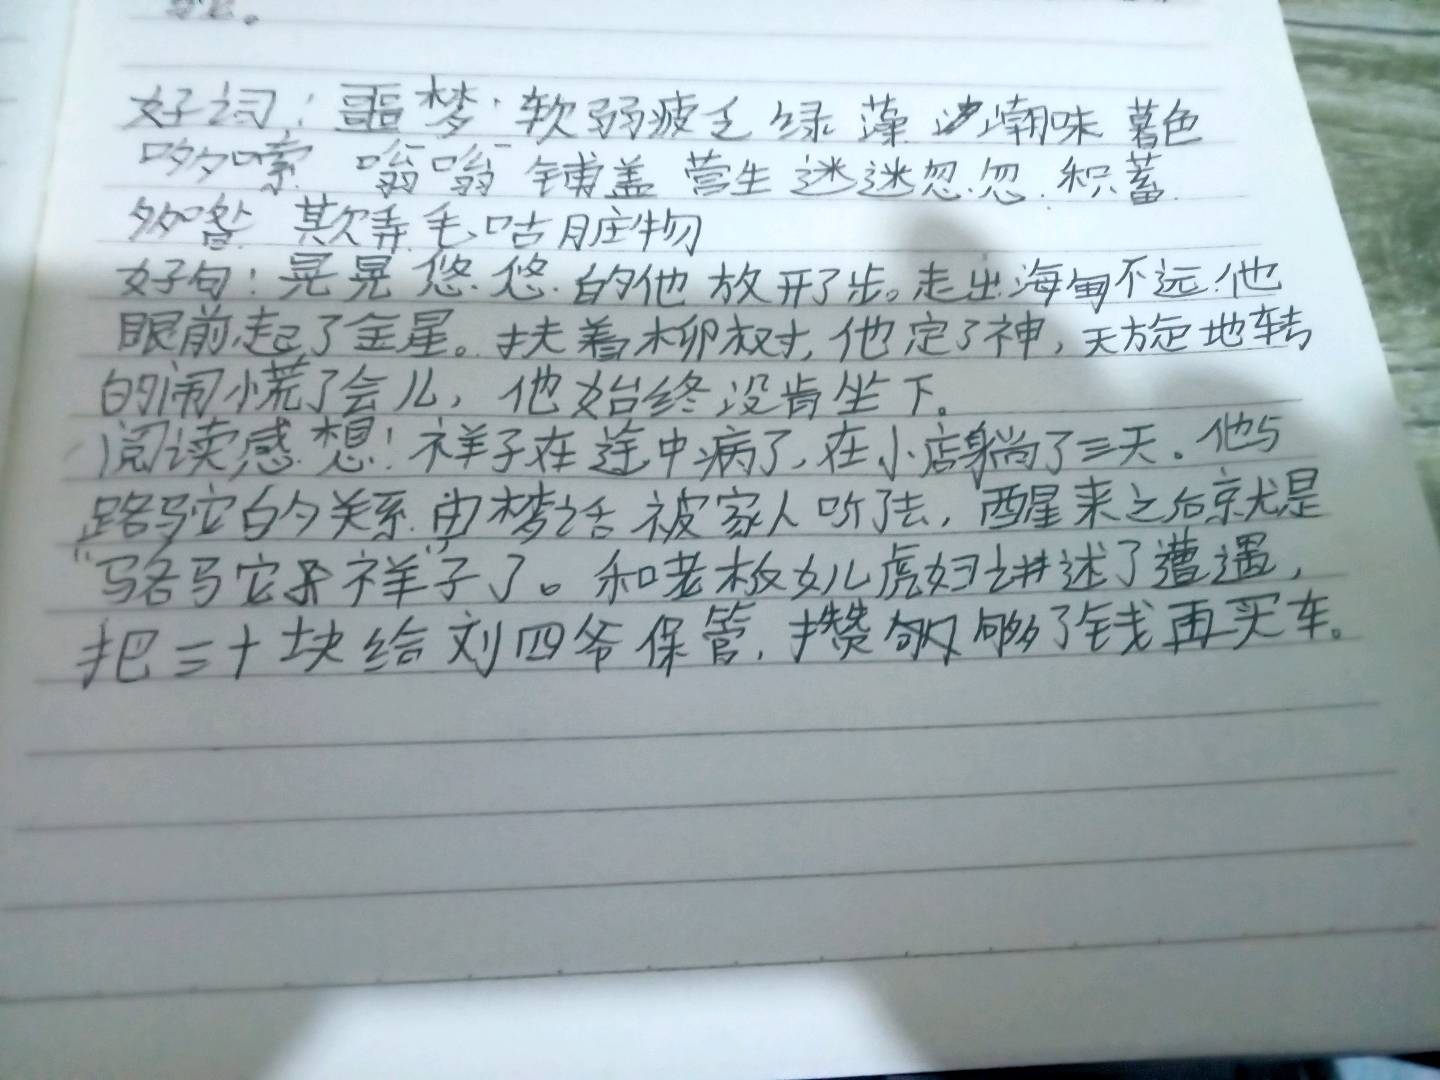 好词：噩梦 软弱疲乏 绿藻 潮味 暮色
哆嗦 嗡嗡 铺盖 营生 迷迷忽忽 积蓄
多咱 欺弄 毛咕 脏物
好句：晃晃悠悠的他放开了步。走出海甸不远，他
眼前起了金星。扶着柳树，他定了神，天旋地转
的闹慌了会儿，他始终没肯坐下。
阅读感想：祥子在途中病了，在小店躺了三天。他与
骆驼的关系由梦话被家人听了去，醒来之后就是
“骆驼祥”子了。和老板女儿虎妞讲述了遭遇，
把三十块给刘四爷保管，攒够了钱再买车。